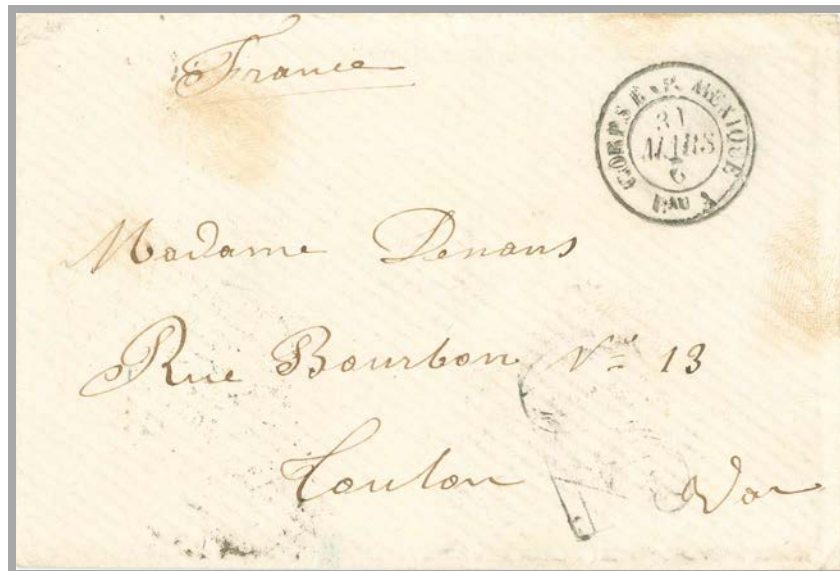 France
CORPS EXP. MEXIQUE
31
MARS
6
Bau
Madame Denans
Rue Bourbon N= 13
Toulon Var